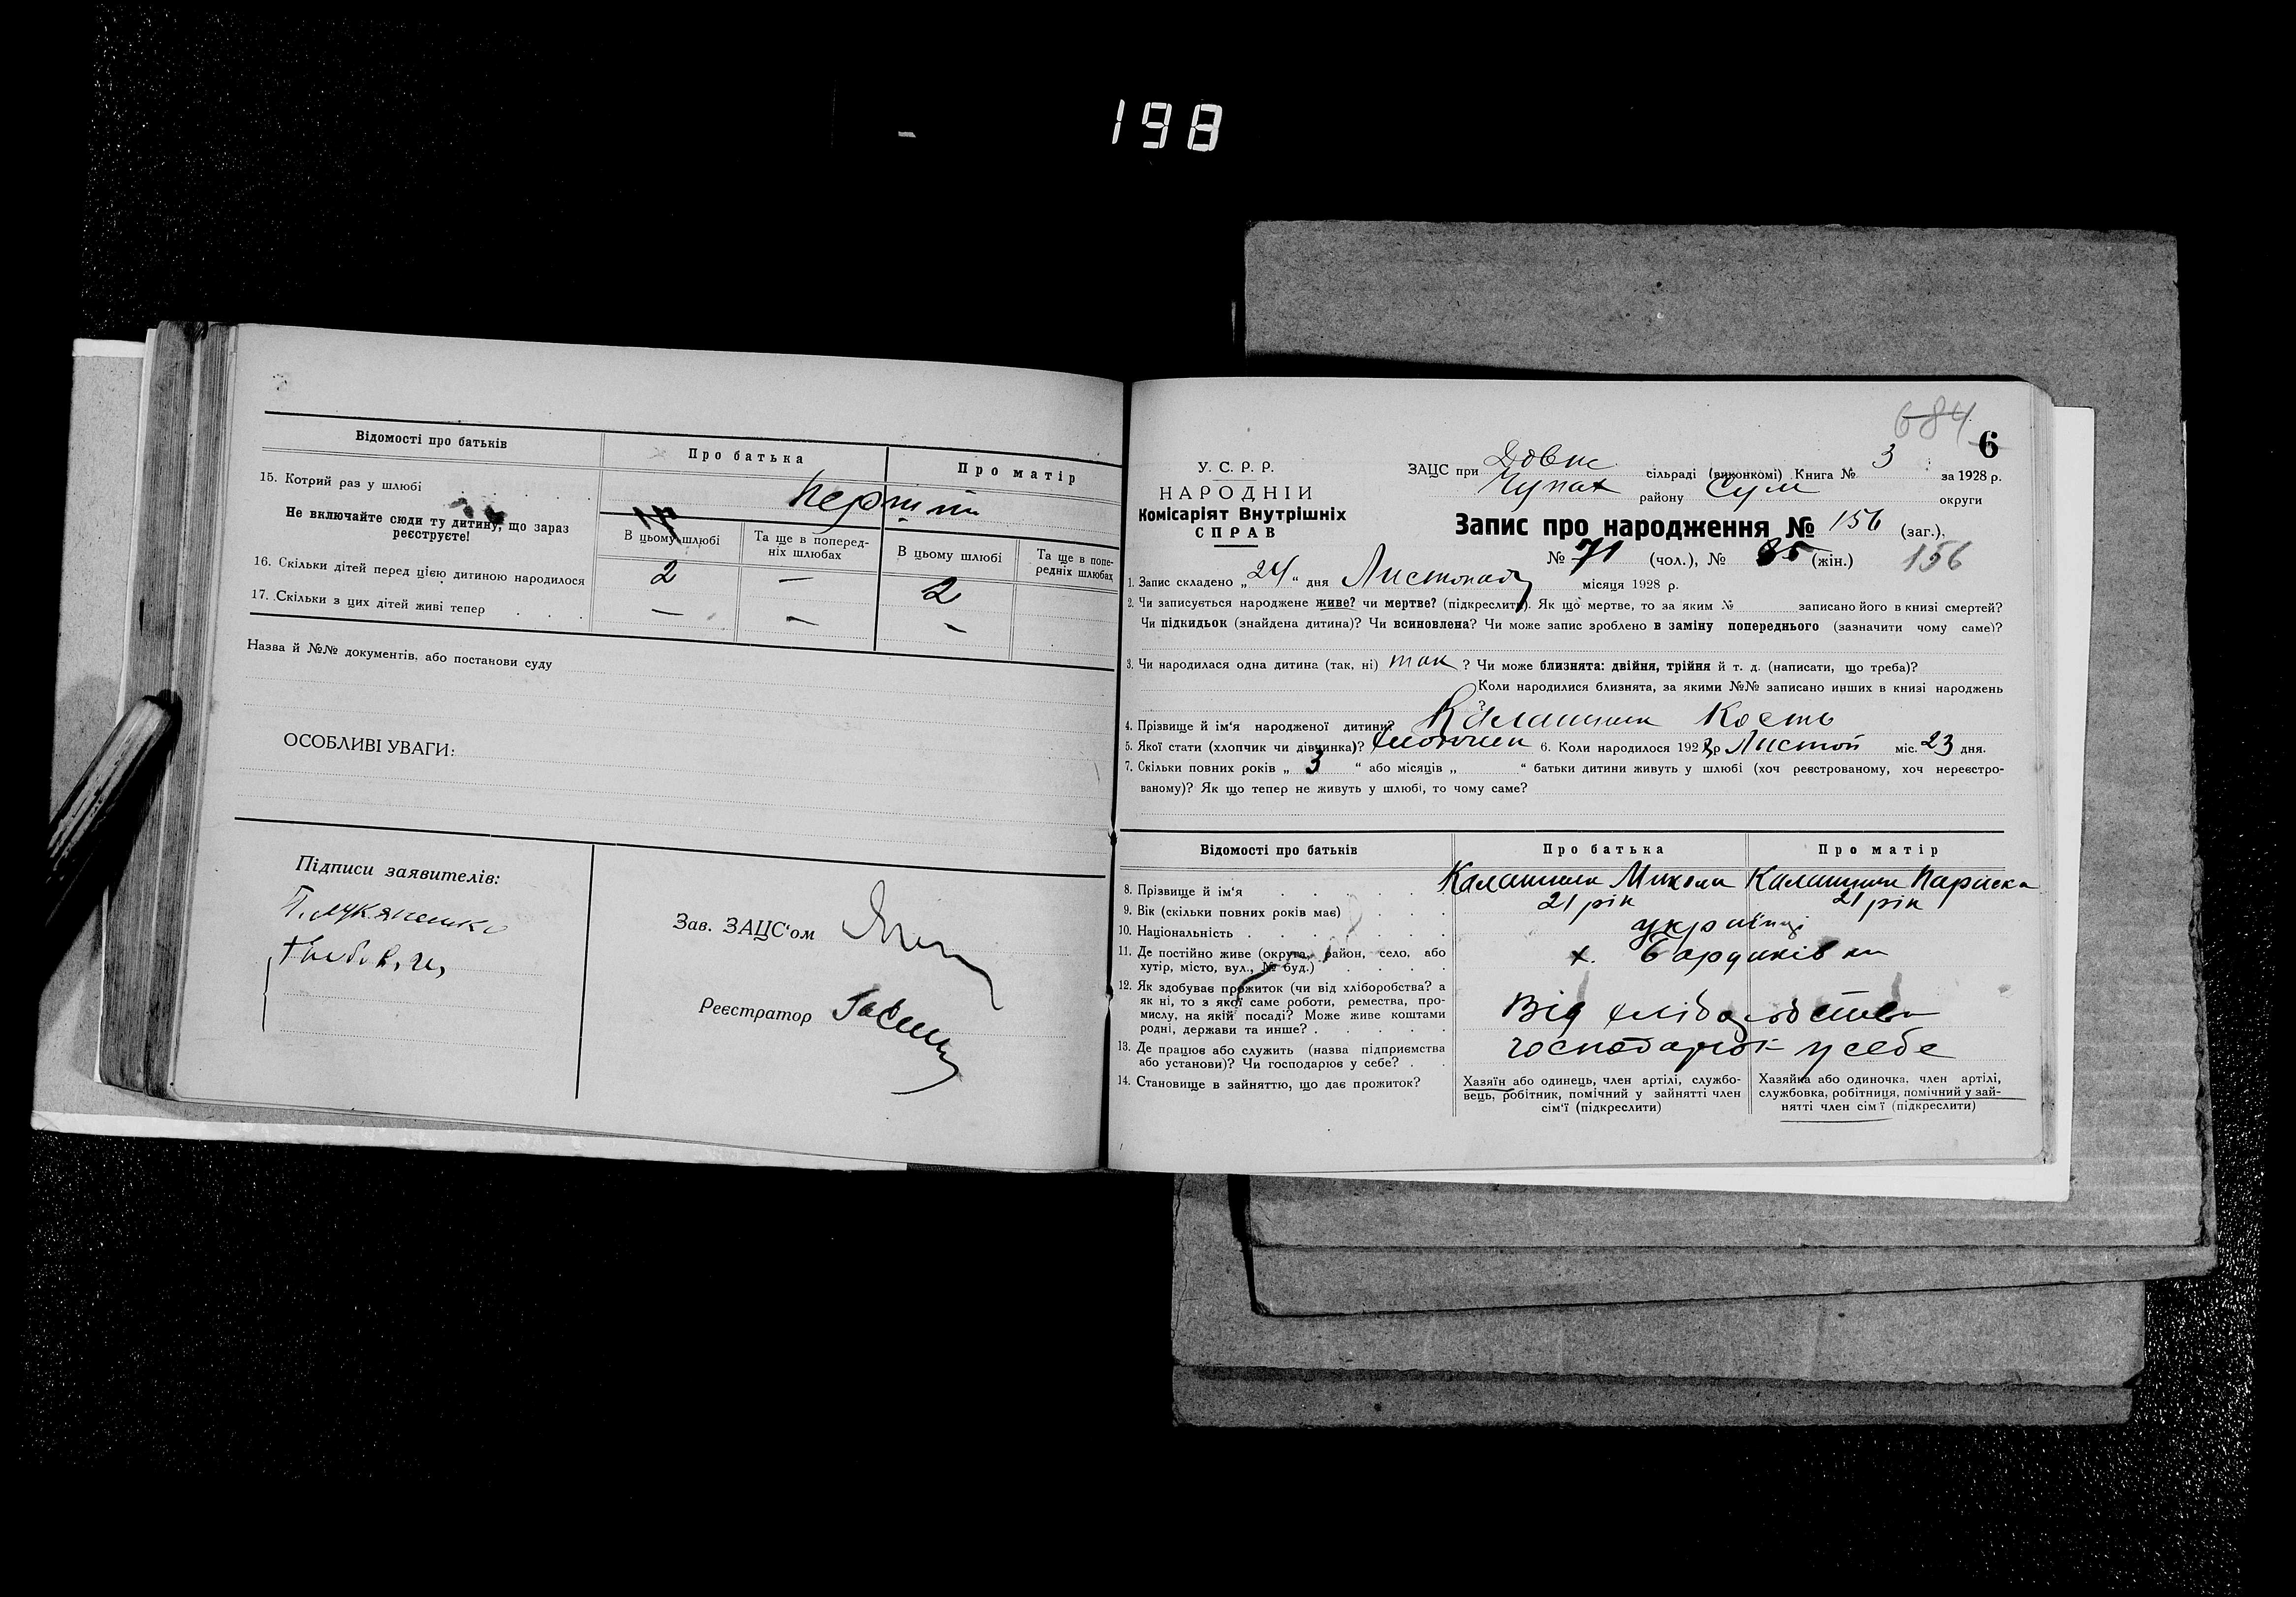 198
Відомості про батьків
Про батька
Про матір
15. Котрий раз у шлюбі
Не включайте сюди ту дитину, що зараз
реєструєте!
В цьому шлюбі
Та ще в поперед-
ніх шлюбах
В цьому шлюбі
Та ще в попе-
редніх шлюбах
16. Скільки дітей перед цією дитиною народилося
2 — 2
17. Скільки з цих дітей живі тепер
— — —
Назва й №№ документів, або постанови суду
ОСОБЛИВІ УВАГИ:
Підписи заявителів:
Зав. ЗАЦС'ом
Реєстратор
684
6
У. С. Р. Р.
НАРОДНІЙ
Комісаріят Внутрішніх
СПРАВ
ЗАЦС при сільраді (виконкомі) Книга № 3 за 1928 р.
Чупах району Сум округи
Запис про народження № 156 (заг.),
№ 71 (чол.), № 85 (жін.) 156
1. Запис складено „24“ дня Листопаду місяця 1928 р.
2. Чи записується народжене живе? чи мертве? (підкреслити). Як що мертве, то за яким № записано його в книзі смертей?
Чи підкидьок (знайдена дитина)? Чи всиновлена? Чи може запис зроблено в заміну попереднього (зазначити чому саме)?
3. Чи народилася одна дитина (так, ні) так ? Чи може близнята: двійня, трійня й т. д. (написати, що треба)?
Коли народилися близнята, за якими №№ записано инших в книзі народжень
?
4. Прізвище й ім'я народженої дитини? Калашник Кость
5. Якої стати (хлопчик чи дівчинка)? 6. Коли народилося 192 р Листоп міс. 23 дня.
7. Скільки повних років „ 3 “ або місяців „ “ батьки дитини живуть у шлюбі (хоч реєстрованому, хоч нереєстро-
ваному)? Як що тепер не живуть у шлюбі, то чому саме?
Відомості про батьків
Про батька
Про матір
8. Прізвище й ім'я
Калашник Микола
Калашник Параска
9. Вік (скільки повних років має)
21 рік
21 рік
10. Національність
українці
11. Де постійно живе (округа, район, село, або
хутір, місто, вул., № буд.)
х.
12. Як здобуває прожиток (чи від хліборобства? а
як ні, то з якої саме роботи, ремества, про-
мислу, на якій посаді? Може живе коштами
родні, держави та инше?
Від
13. Де працює або служить (назва підприємства
або установи)? Чи господарює у себе?
у себе
14. Становище в зайняттю, що дає прожиток?
Хазяїн або одинець, член артілі, службо-
вець, робітник, помічний у зайнятті член
сім'ї (підкреслити)
Хазяйка або одиночка, член артілі,
службовка, робітниця, помічний у зай-
нятті член сім'ї (підкреслити)